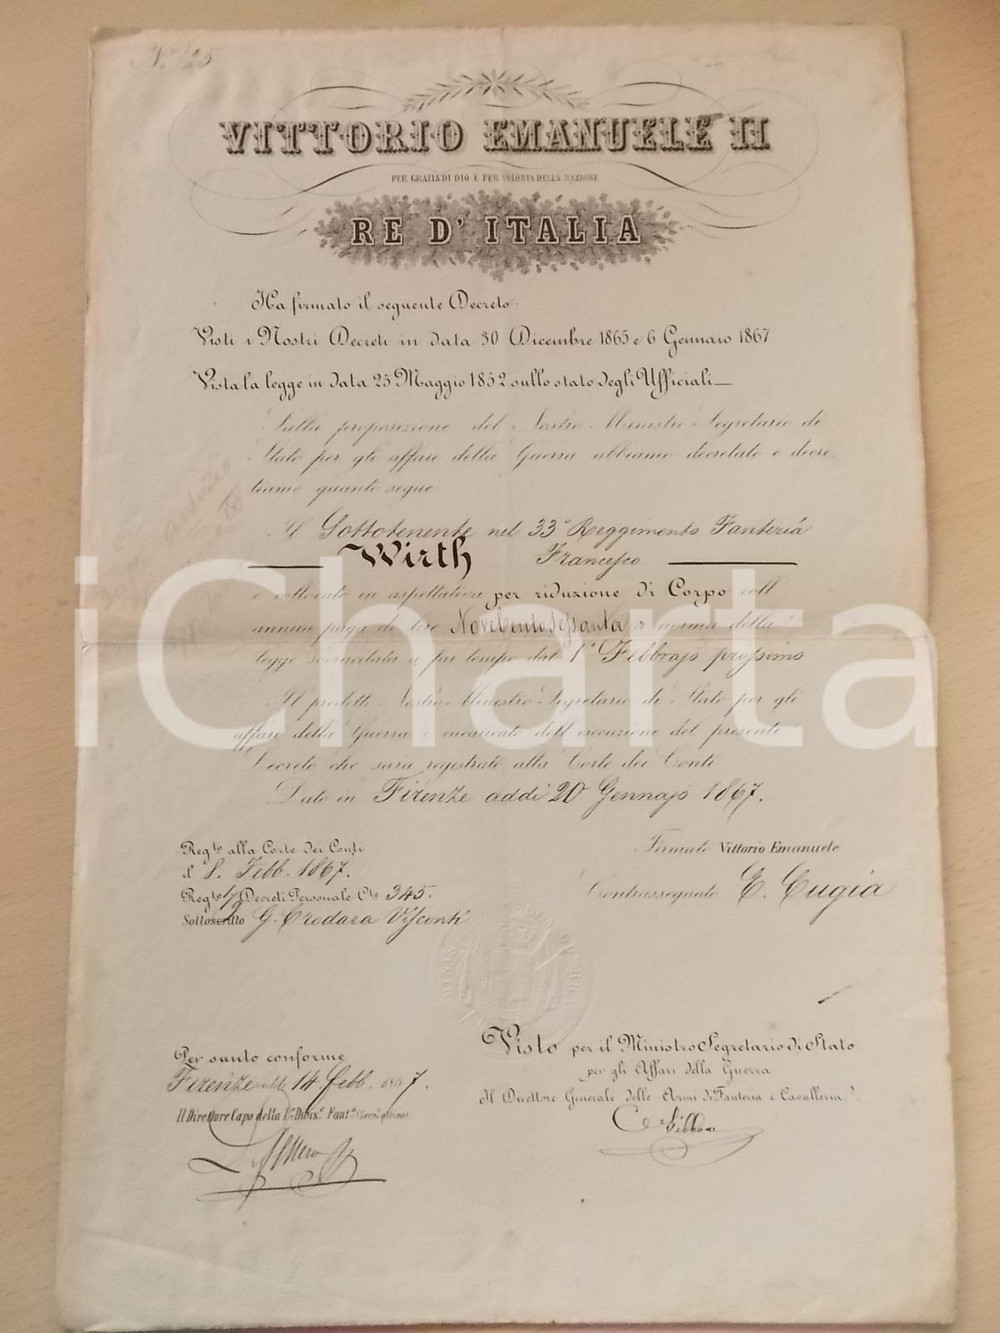 VITTORIO EMANUELE II
PER GRAZIA DI DIO E PER VOLONTA DELLA NAZIONE
RE D'ITALIA
Ha firmato il seguente Decreto
Visti i Nostri Decreti in data 30 Dicembre 1865 e 6 Gennaio 1867
Vista la legge in data 25 Maggio 1852 sullo stato degli Ufficiali
Sulla proposizione del Nostro Ministro Segretario di
Stato per gli affari della Guerra abbiamo decretato e decre
tiamo quanto segue
Il Sottotenente nel 33° Reggimento Fanteria
Wirth Francesco
è collocato in aspettativa per riduzione di Corpo coll'
annua paga di lire Novecentosessanta a norma della
legge succitata a far tempo dal 1° Febbrajo prossimo
Il predetto Nostro Ministro Segretario di Stato per gli
affari della Guerra è incaricato dell'esecuzione del presente
Decreto che sarà registrato alla Corte dei Conti
Dato in Firenze addì 20 Gennajo 1867.
Regto alla Corte dei Conti
il 8. Febb. 1867.
Regto Decreti Personale Cte 345.
Sottoscritto G. Crodara Visconti
Firmato Vittorio Emanuele
Contrassegnato E. Cugia
Per sunto conforme
Firenze addì 14 febb. 1867.
Il Direttore Capo della Divis. Fant.
Visto per il Ministro Segretario di Stato
per gli Affari della Guerra
Il Direttore Generale delle Armi di Fanteria e Cavalleria
iCharta